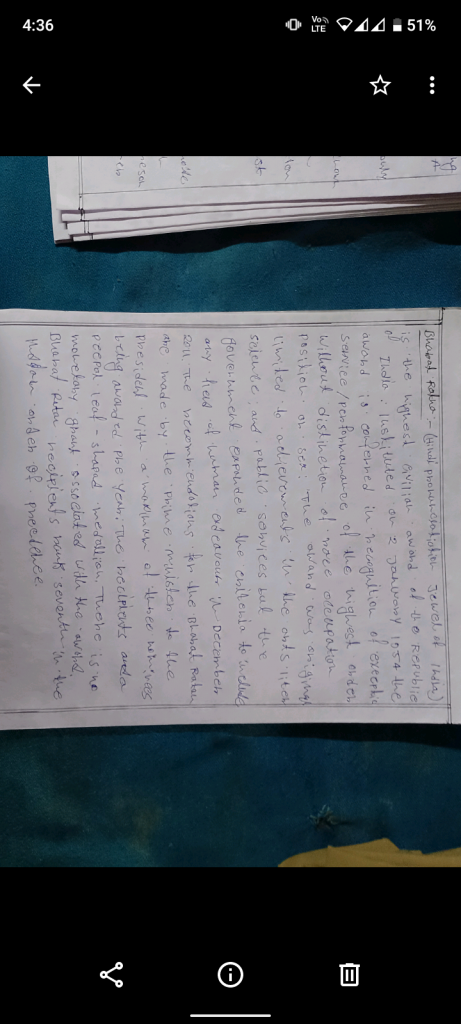 4:36
Vo))
LTE
51%
Bharat Ratna :- (Hindi pronunciation Jewel of India)
is the highest civilian award of the Republic
of India. Instituted on 2 January 1954 the
award is conferred in recognition of
service/performance of the highest order
without distinction of race occupation
position or sex. The award was original
limited to achievements in the arts liter
science and public services but the
government expanded the criteria to include
any field of human endeavour in December
2011 The recommendations for the Bharat Ratan
are made by the prime minister to the
president with a maximum of three nominees
being awarded per year. The recipients
peepal leaf - shaped medallion. There is no
monetary grant associated with the award
Bharat Ratan recipients rank seventh in the
Indian order of precedence.